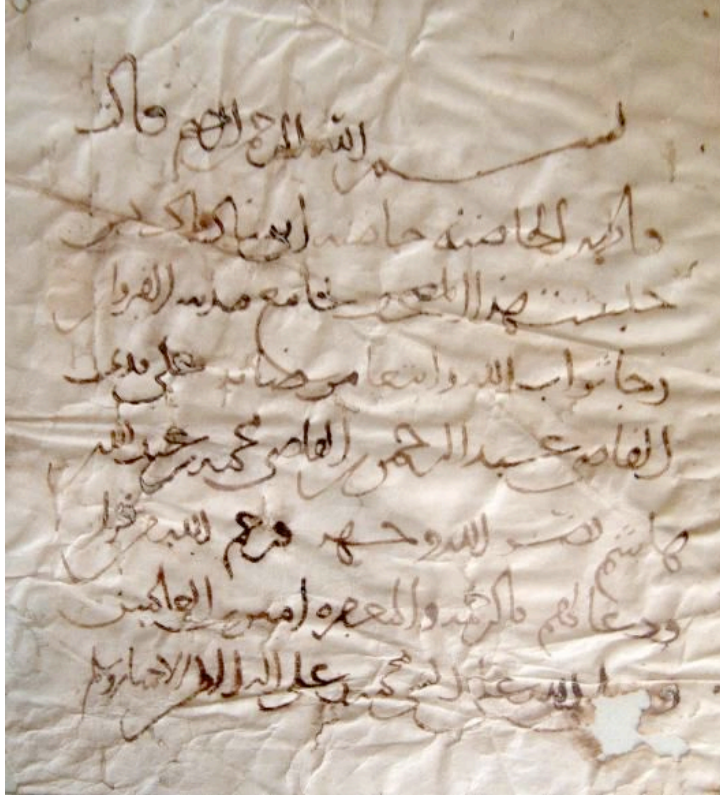 بسم الله الرحمن الرحيم قالت
فاطمة الحاضنة حاضنة أبي مناد باديس
حبست هذا المصحف بجامع مدينة القيروان
رجاء ثواب الله وابتغاء مرضاته على يدي
القاضي عبد الرحمن بن القاضي محمد بن عبد الله
بن هاشم نضر الله وجهه فرحم الله من قرأ
ودعا لهم بالرحمة والمغفرة امين رب العالمين
وصلى الله على النبي محمد وعلى اله الابرار وسلم